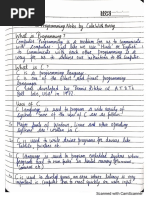 Programming Notes by CodeWithHarry
What is Programming?
Computer Programming is a medium for us to communicate
with computers. Just like we use Hindi or English
to communicate with each other, programming is a
way for us to deliver our instructions to the computer.
What is C?
C is a programming language.
C is one of the oldest and finest programming
languages.
C was developed by Dennis Ritchie at AT&T's
Uses of C
C language is used to program a wide variety of
systems. Some of the uses of C are as follows:
Major parts of Windows, Linux and other operating
systems are written in C.
C is used to write driver programs for devices
like
C language is used to program embedded systems
where programs need to run faster in limited
C is used to develop games, an area where latency is
very important
Scanned with CamScanner